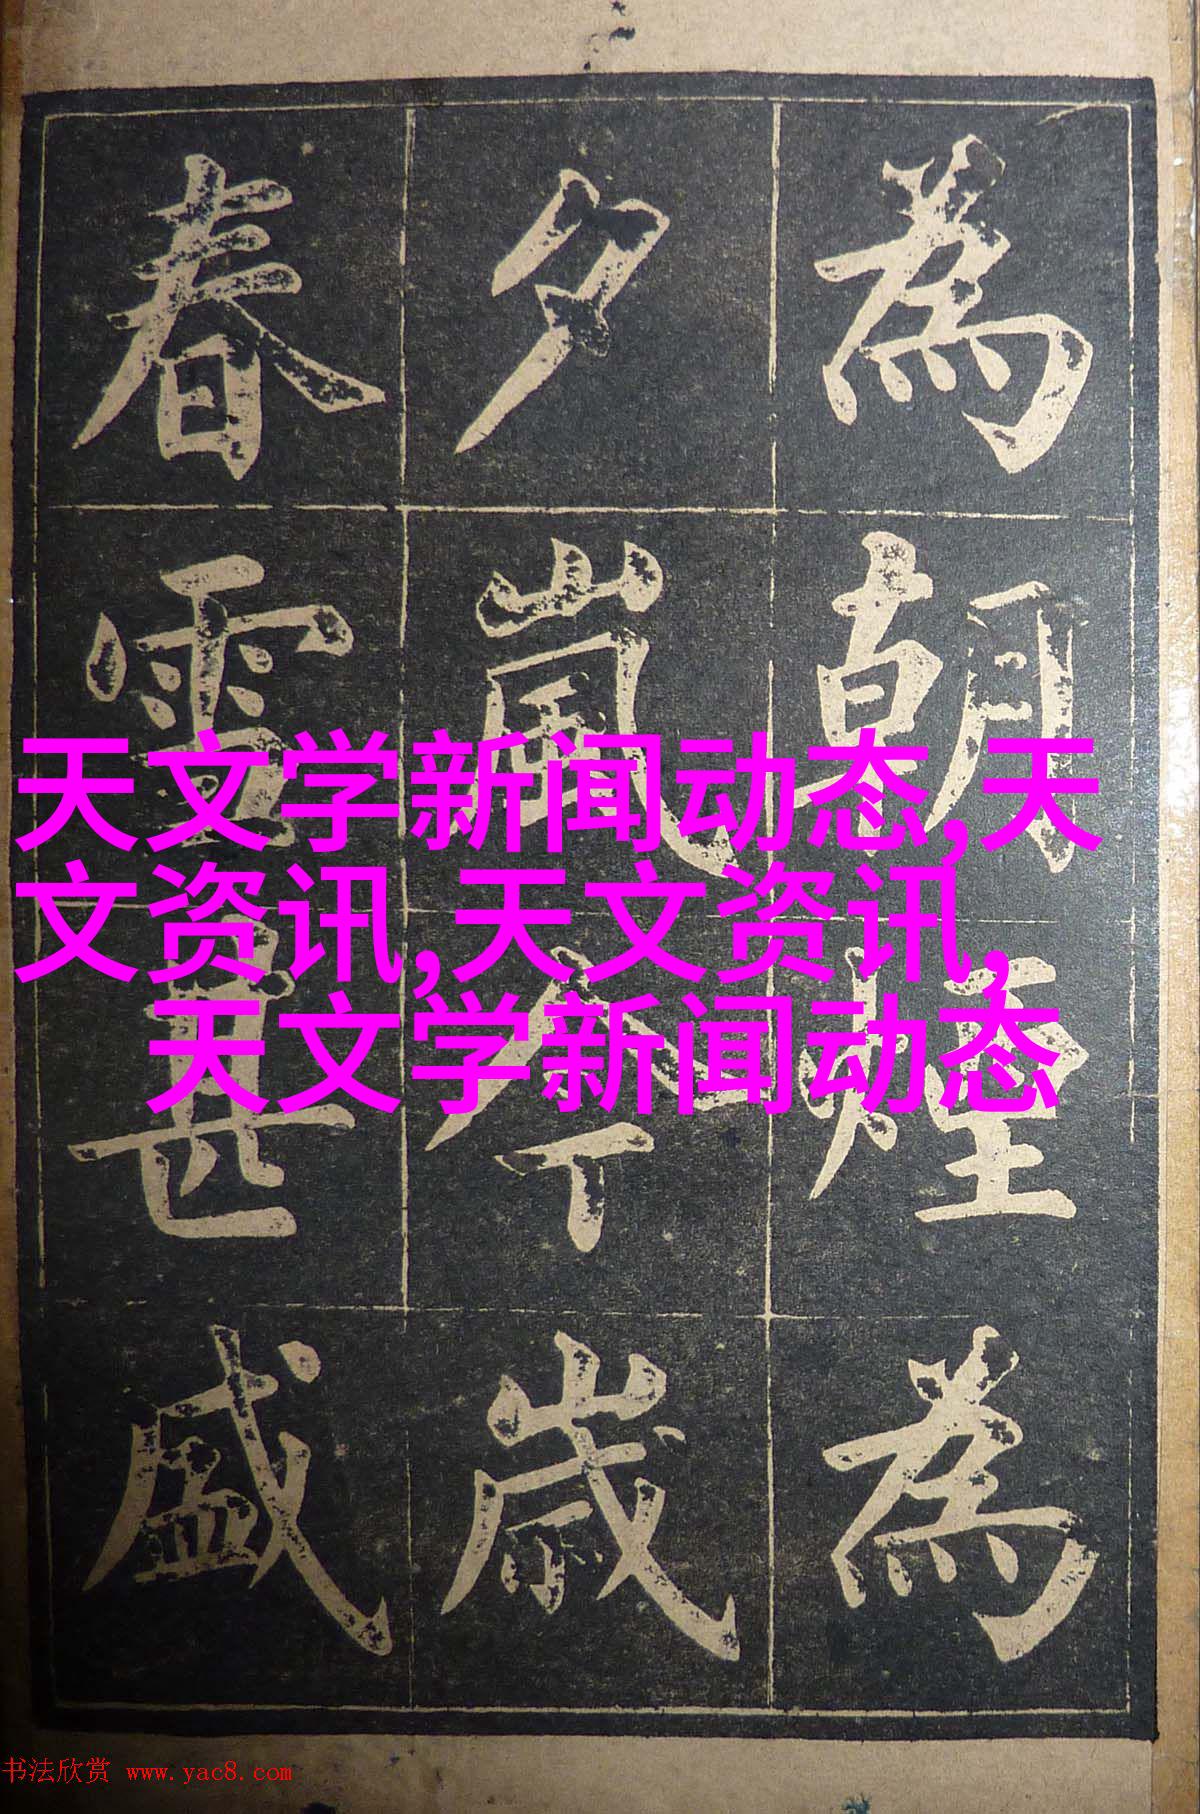 為朝煙為
夕嵐今歲
春雪甚盛
天文学新闻动态,天
文资讯,天文资讯,
天文学新闻动态
书法欣赏 www.yac8.com